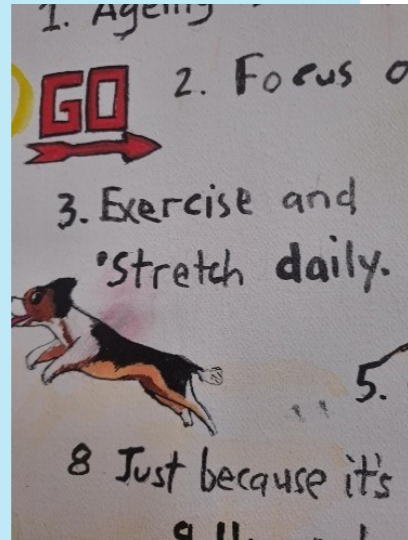 1. Ageing
GO
2. Focus o
3. Exercise and
'Stretch daily.
5.
8 Just because it's